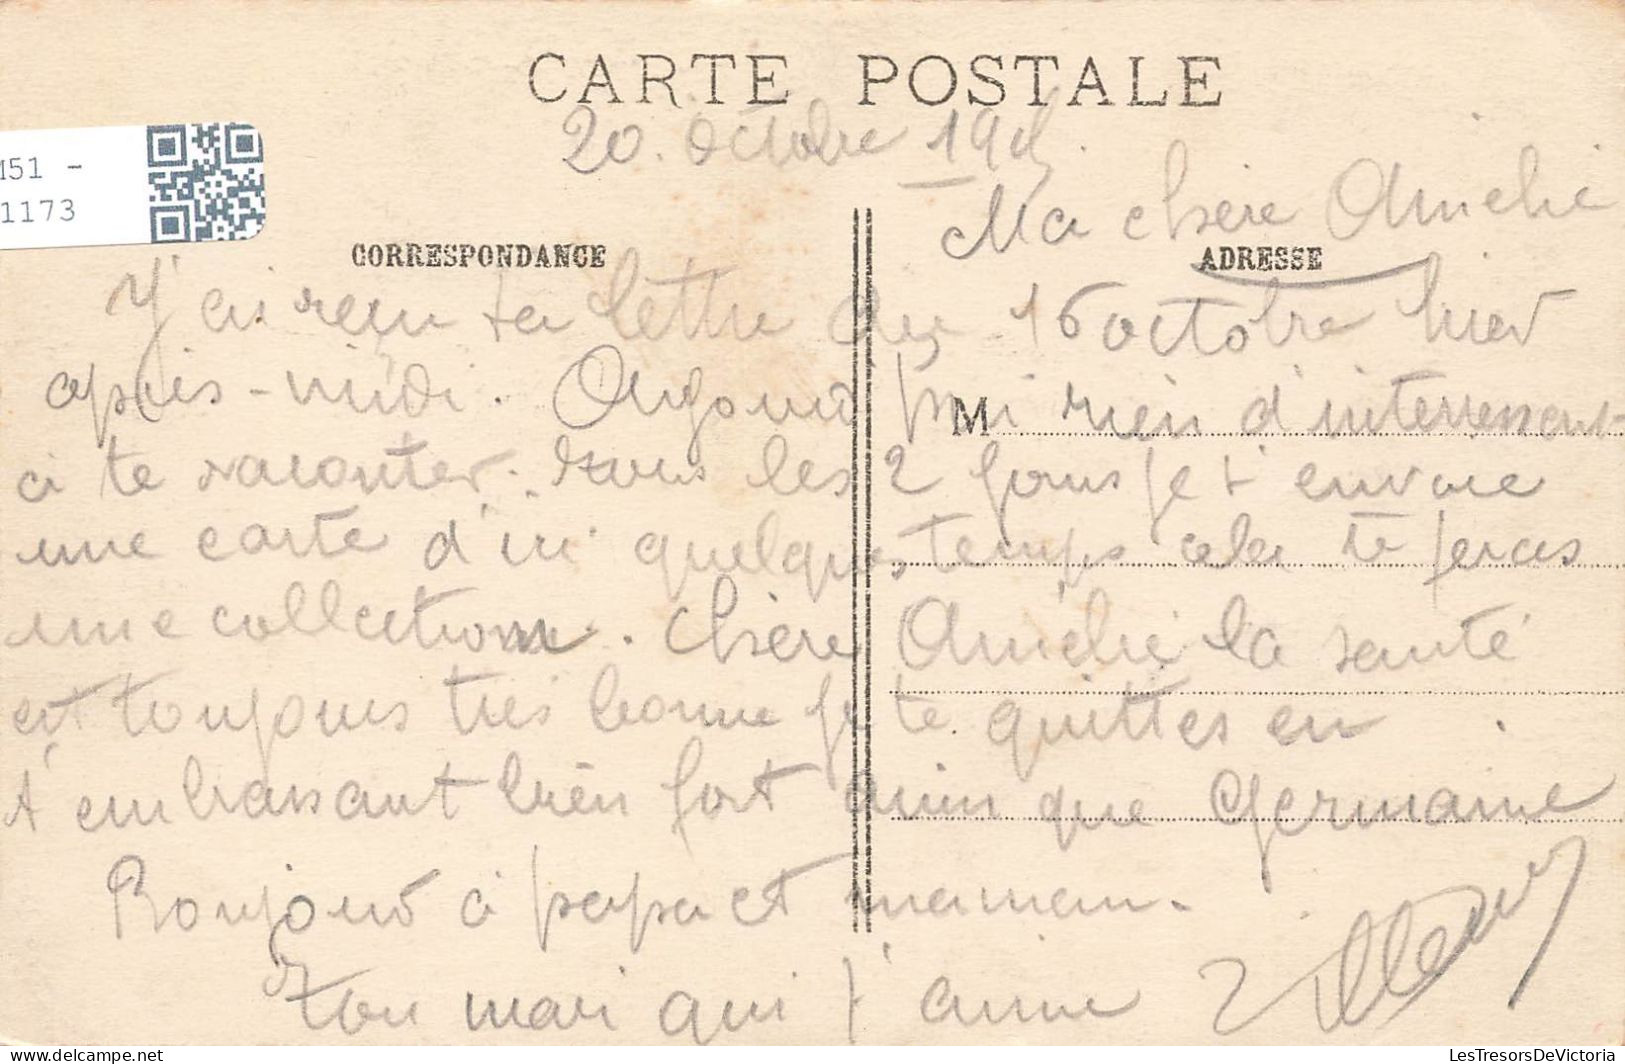 CARTE POSTALE
20. Octobre 191
M51 -
1173
Ma chère Amelie
CORRESPONDANCE
ADRESSE
J'ai reçu ta lettre du 16 octobre hier
apris-midi. Aujourd'hui rien d'interressant
M
a te raconter. tous les 2 jours je t envoie
une carte d'ici quelques temps cela te feras
une collection. Chère Amelie la santé
est toujours tres bonne je te quittes en
t'embrassant bien fort ainsi que Germaine
Bonjour a papa et maman.
Ton mari qui t'aime
LesTresorsDeVictoria